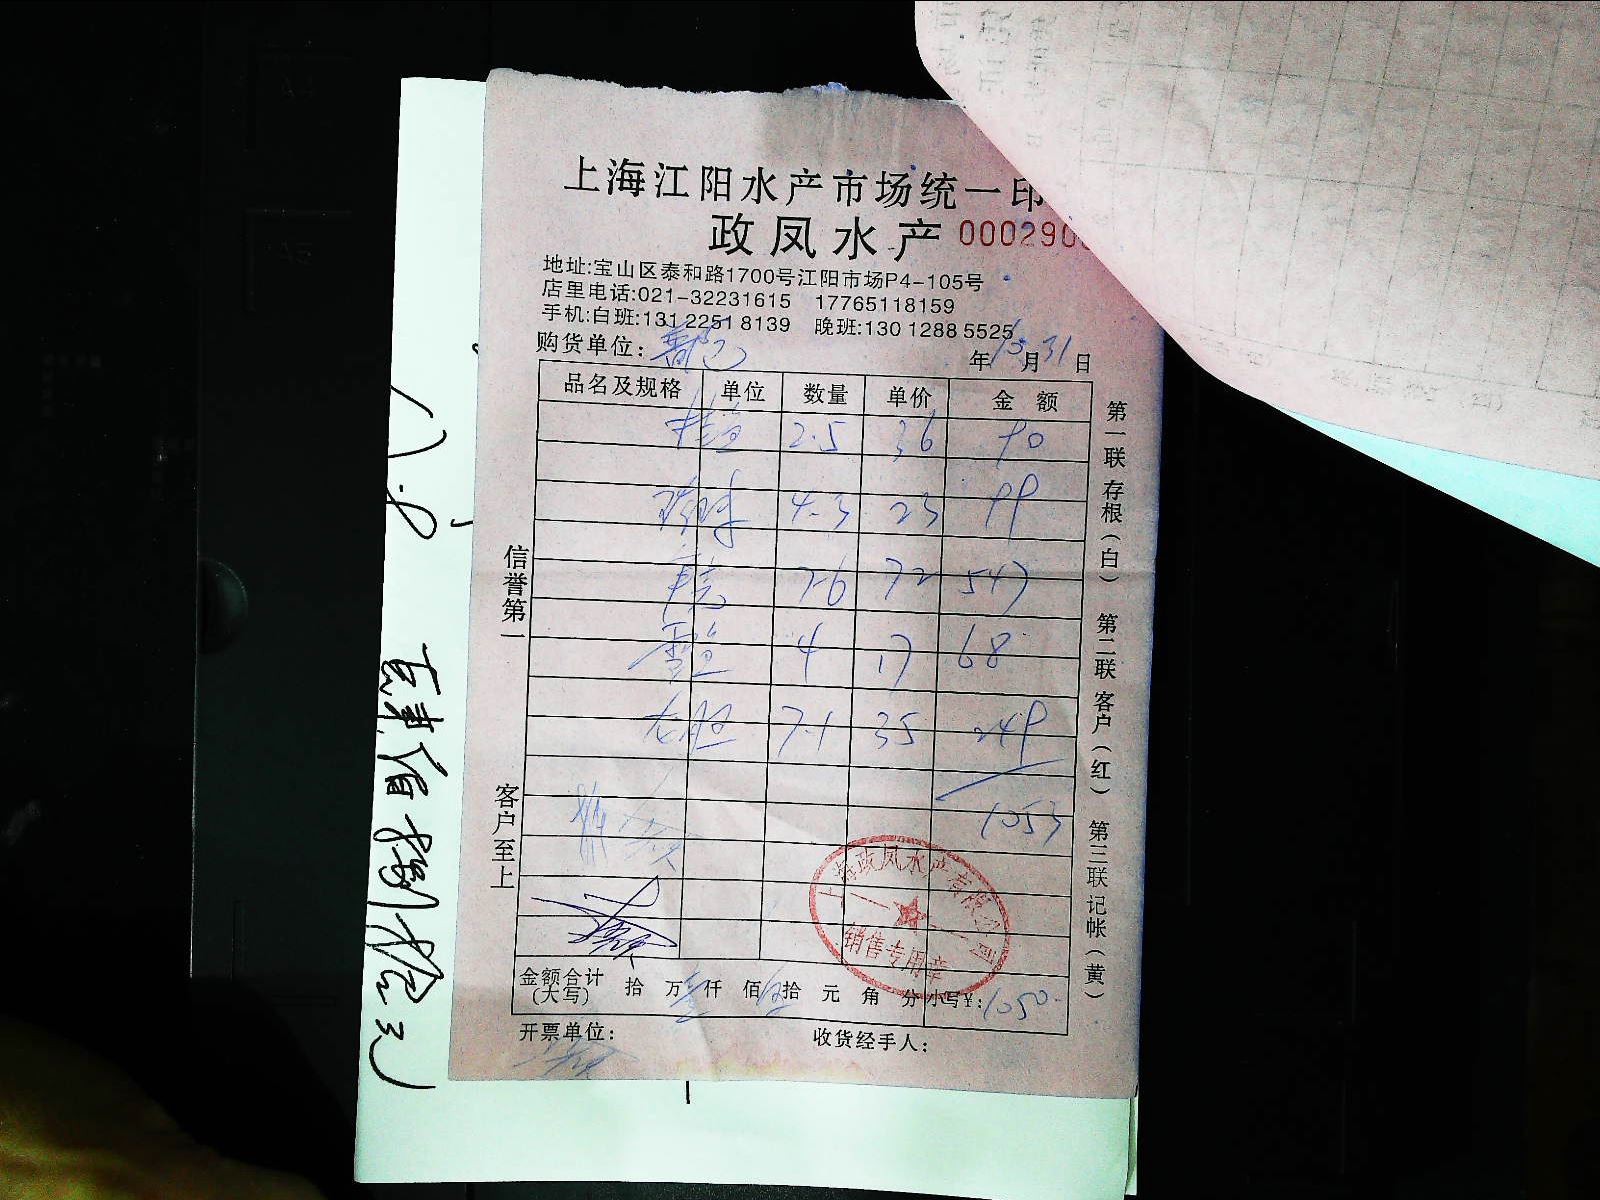 上海江阳水产市场统一印
政凤水产 000290
地址:宝山区泰和路1700号江阳市场P4-105号
店里电话:021-32231615 17765118159
手机:白班:131 2251 8139 晚班:130 1288 5525
购货单位: 年 10 月 31 日
品名及规格 单位 数量 单价 金额
桂鱼 2.5 36 90
4.3 23 99
7.6 72 547
4 17 68
龙胆 7.1 35 249
1053
上海政凤水产有限公司
销售专用章
金额合计(大写) 拾 万 壹 仟 佰 伍 拾 元 角 分 小写¥: 1050.
开票单位: 收货经手人:
信誉第一
客户至上
第一联 存根(白) 第二联 客户(红) 第三联 记帐(黄)